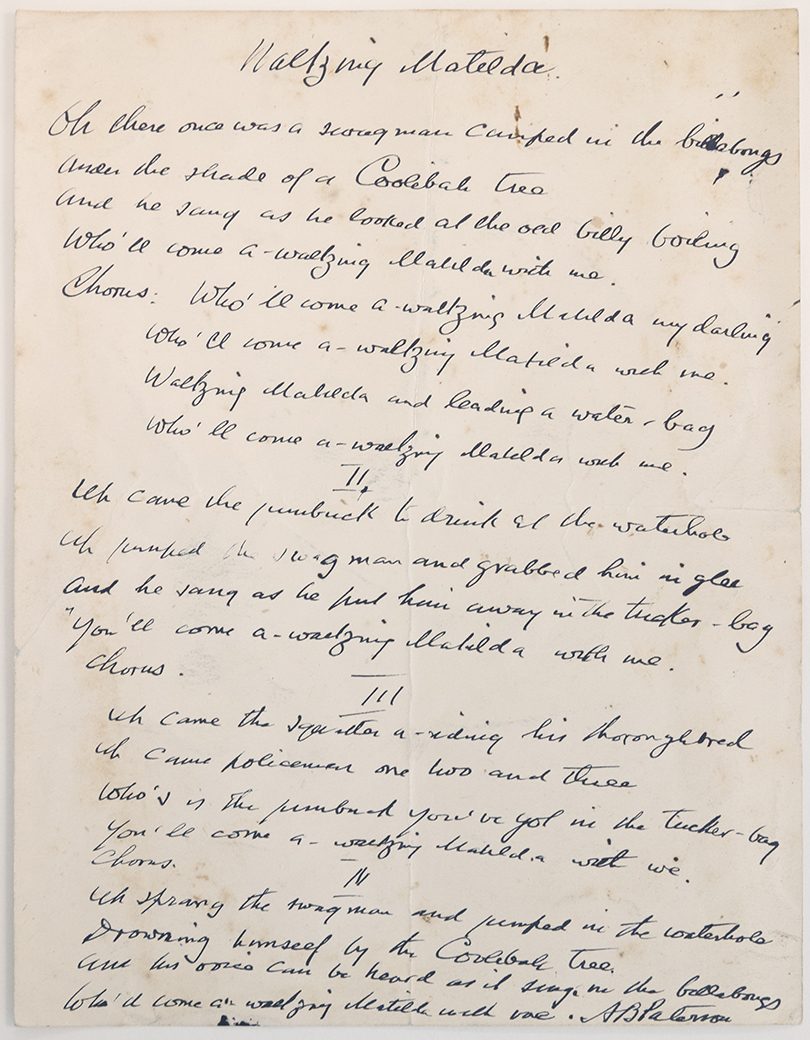 Waltzing Matilda.
Oh there once was a swagman camped in the billabongs
Under the shade of a Coolibah tree
And he sang as he looked at the old billy boiling
Who'll come a-waltzing Matilda with me.
Chorus: Who'll come a-waltzing Matilda my darling
Who'll come a-waltzing Matilda with me.
Waltzing Matilda and leading a water-bag
Who'll come a-waltzing Matilda with me.
II
Up came the jumbuck to drink at the waterhole
Up jumped the swagman and grabbed him in glee
And he sang as he put him away in the tucker-bag
"You'll come a-waltzing Matilda with me.
Chorus.
III
Up came the squatter a-riding his thoroughbred
Up came policeman one two and three
Who's is the jumbuck you've got in the tucker-bag
You'll come a-waltzing Matilda with we.
Chorus.
IV
Up sprang the swagman and jumped in the waterhole
Drowning himself by the Coolibah tree.
And his voice can be heard as it sings in the billabongs
Who'll come a-waltzing Matilda with me. ABPaterson